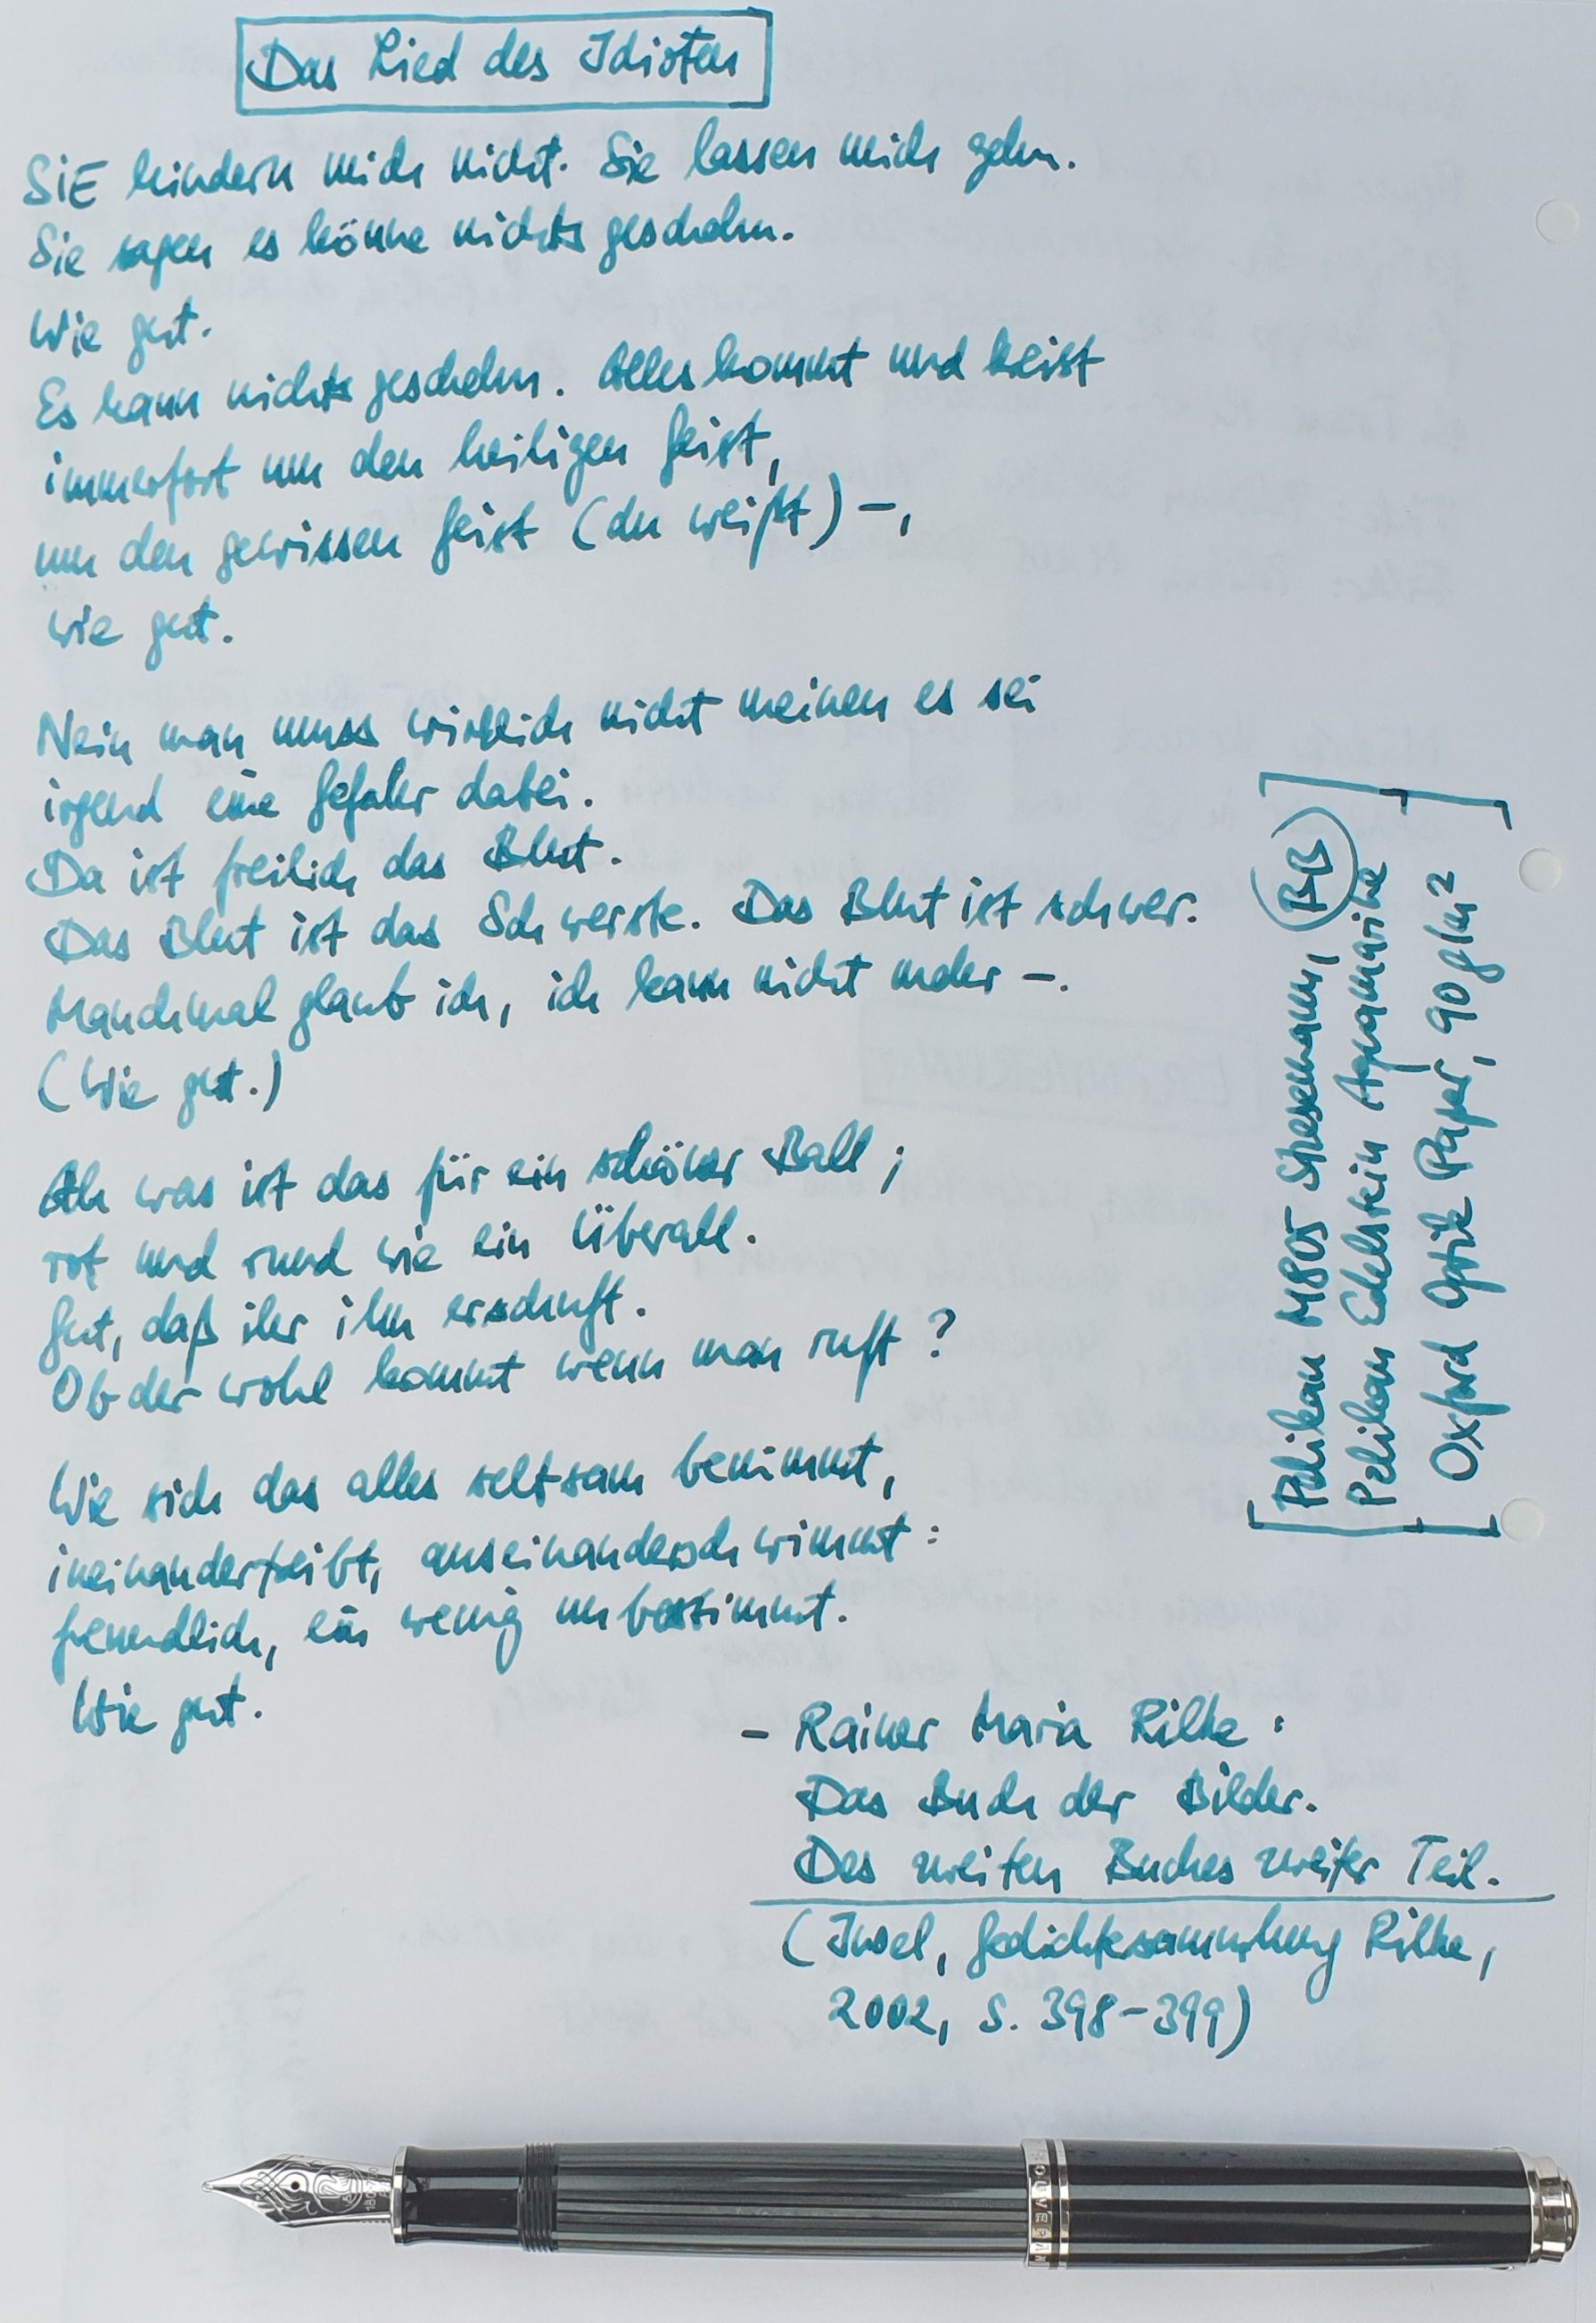 Das Lied des Idioten
SiE hindern mich nicht. Sie lassen mich gehn.
Sie sagen es könne nichts geschehn.
Wie gut.
Es kann nichts geschehn. Alles kommt und kreist
immerfort um den heiligen Geist,
um den gewissen Geist (du weißt) –,
wie gut.
Nein man muss wirklich nicht meinen es sei
irgend eine Gefahr dabei.
Da ist freilich das Blut.
Das Blut ist das Schwerste. Das Blut ist schwer.
Manchmal glaub ich, ich kann nicht mehr –.
(Wie gut.)
Ah was ist das für ein schöner Ball;
rot und rund wie ein Überall.
Gut, daß ihr ihn erschuft.
Ob der wohl kommt wenn man ruft?
Wie sich das alles seltsam benimmt,
ineinandertreibt, auseinanderschwimmt:
freundlich, ein wenig unbestimmt.
Wie gut.
– Rainer Maria Rilke:
Das Buch der Bilder.
Des zweiten Buches zweiter Teil.
(Insel, Gedichtesammlung Rilke,
2002, S. 398–399)
[Pelikan M805 Stresemann, BB
Pelikan Edelstein Aquamarine
Oxford Optik Paper, 90 g/m²]
SOUVERÄN